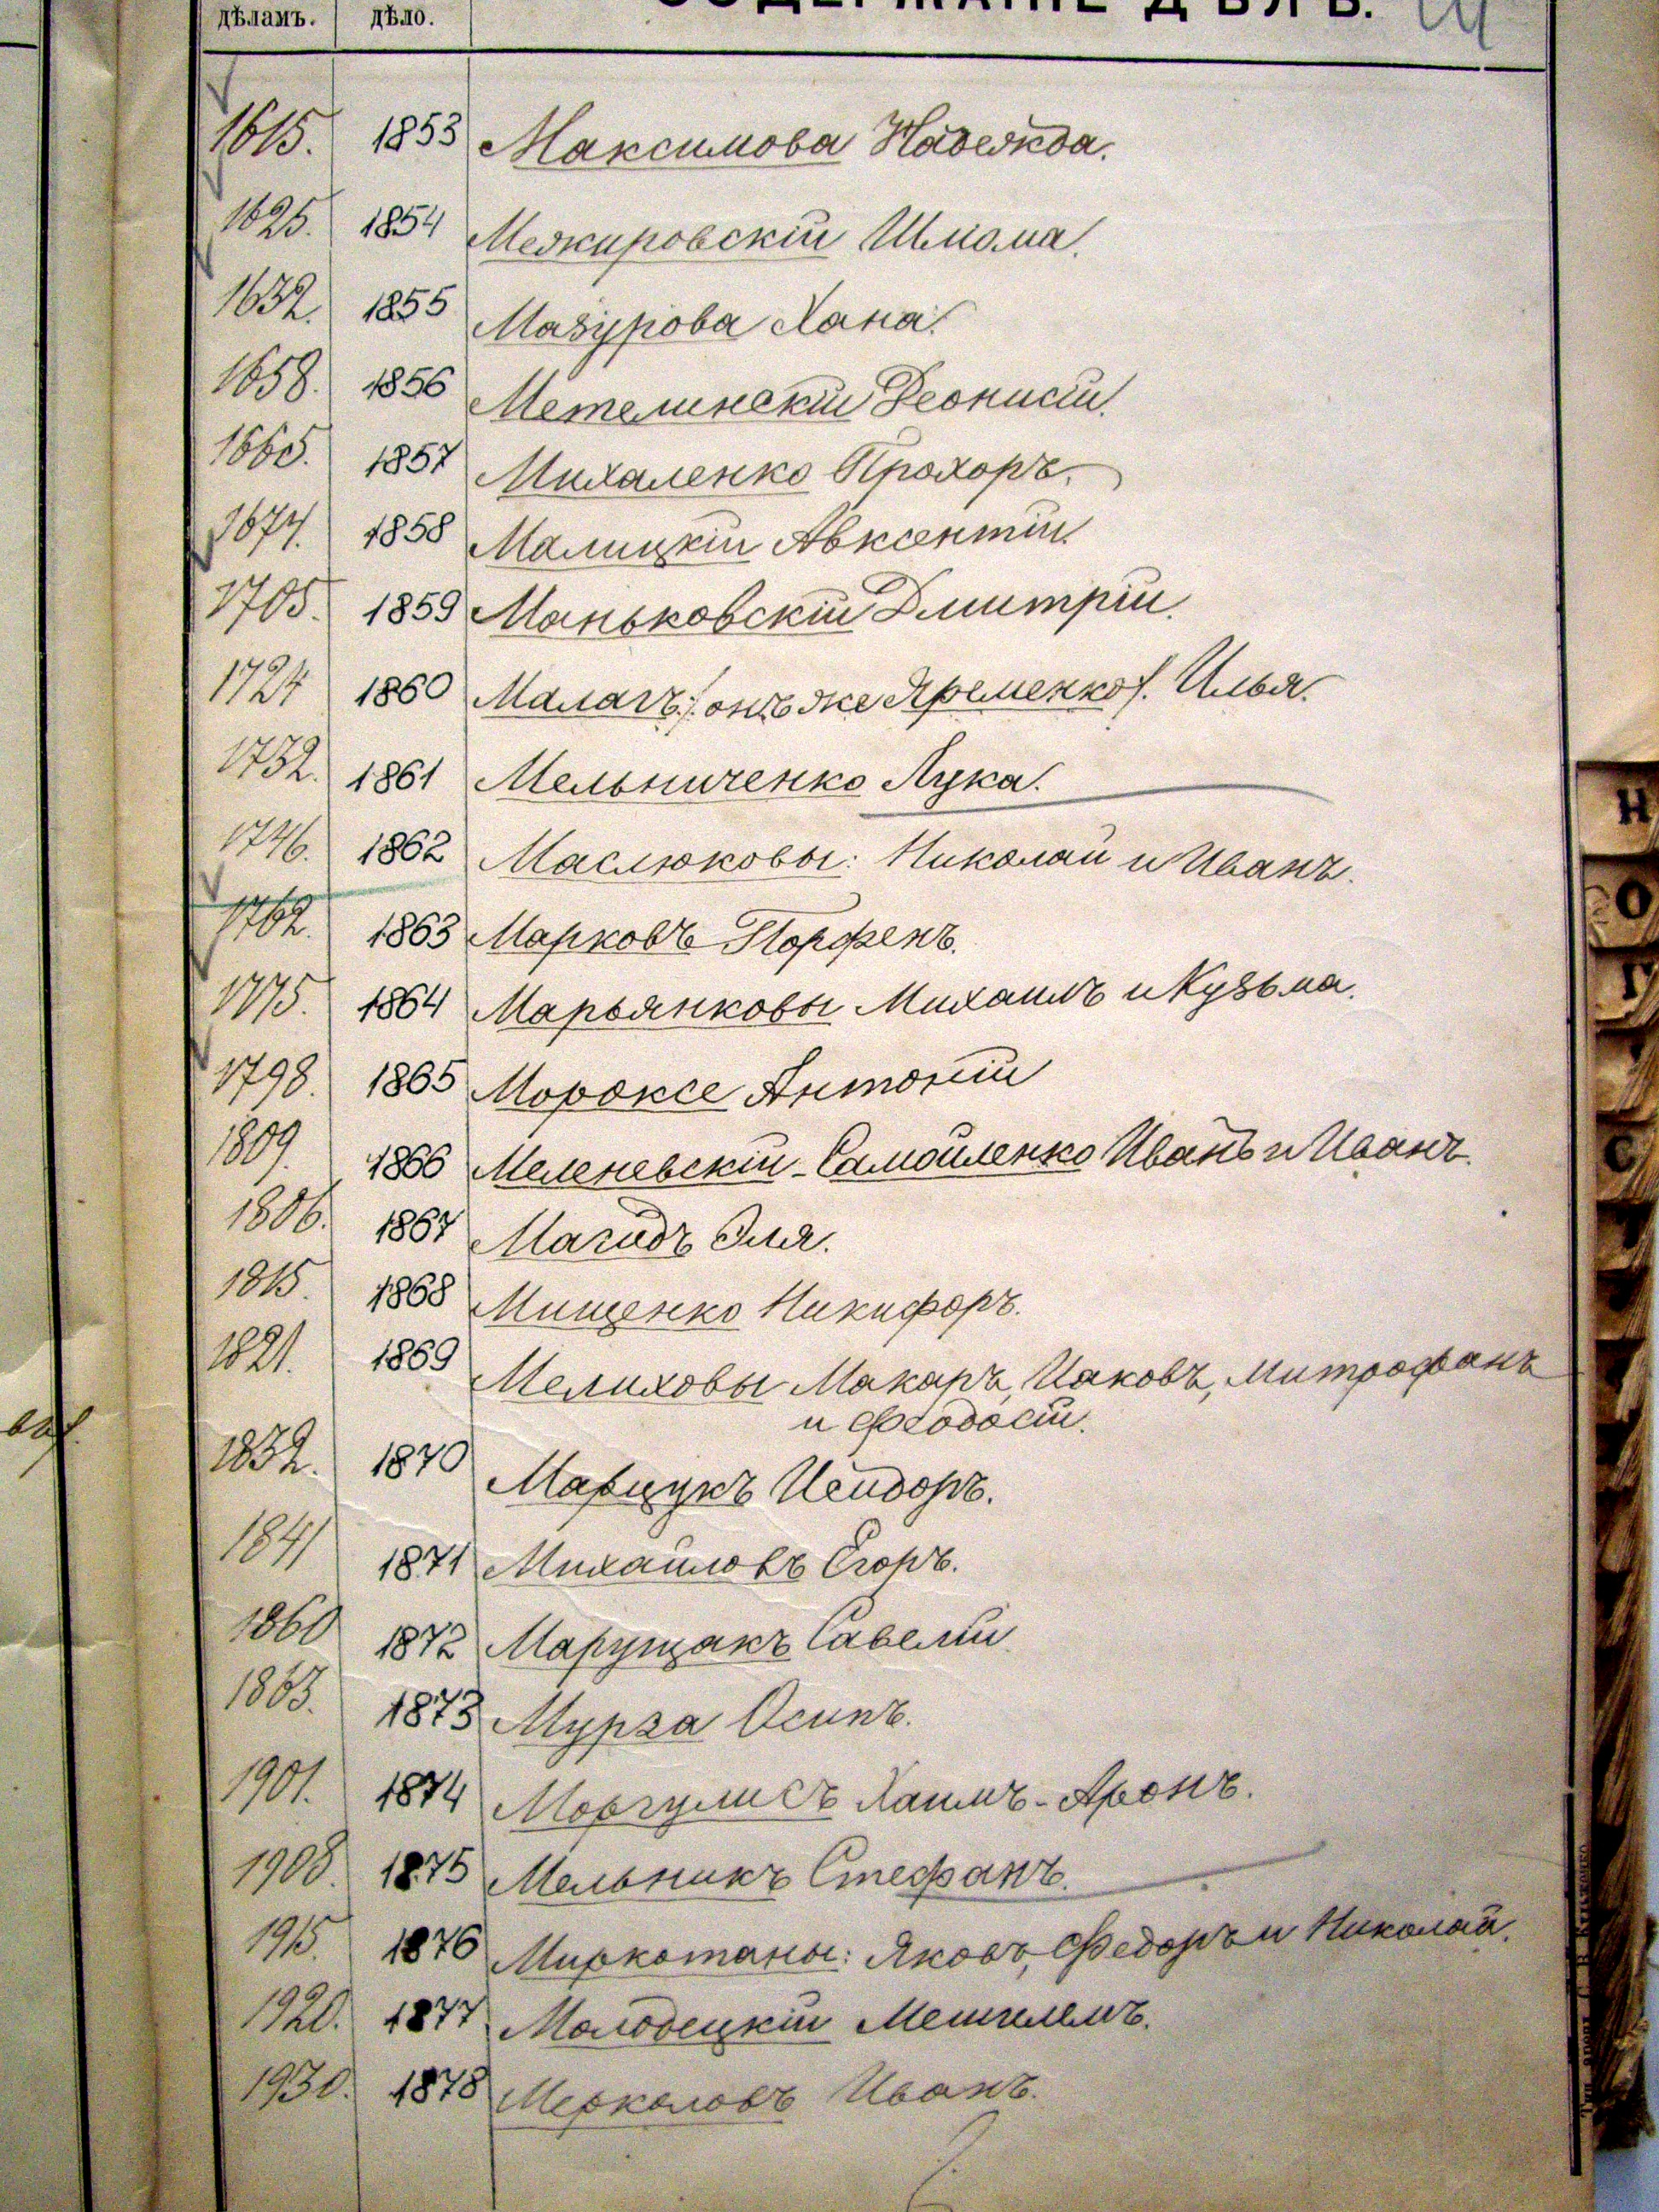 дѣламъ. дѣло. СОДЕРЖАНІЕ ДѢЛЪ.
1615. 1853 Максимова Надежда.
1625. 1854 Межировскій Шлома.
1632. 1855 Мазурова Хана.
1658. 1856 Метелинскій Деонисій.
1665. 1857 Михаленко Прохоръ.
1674. 1858 Малицкій Авксентій.
1705. 1859 Маньковскій Дмитрій.
1724 1860 Малагъ /: онъ же Яременко /. Илья.
1732. 1861 Мельниченко Лука.
1746. 1862 Маслюковы: Николай и Иванъ.
1762. 1863 Марковъ Порфенъ.
1775. 1864 Марьянковы Михаилъ и Кузьма.
1798. 1865 Мороксе Антоній
1809. 1866 Меленевскій-Самойленко Иванъ и Иванъ.
1806. 1867 Магидъ Эля.
1815. 1868 Мищенко Никифоръ.
1821. 1869 Мелиховы Макаръ, Иаковъ, Митрофанъ
и Феодосій.
1832. 1870 Марцукъ Исидоръ.
1841 1871 Михайловъ Егоръ.
1860 1872 Марущакъ Савелій
1863. 1873 Мурза Осипъ.
1901. 1874 Моргулисъ Хаимъ-Аронъ.
1908. 1875 Мельникъ Стефанъ.
1915. 1876 Миркотаны: Яковъ, Федоръ и Николай.
1920. 1877 Молодецкій Мешилемъ.
1930. 1878 Меркаловъ Иванъ.
Н
О
П
С